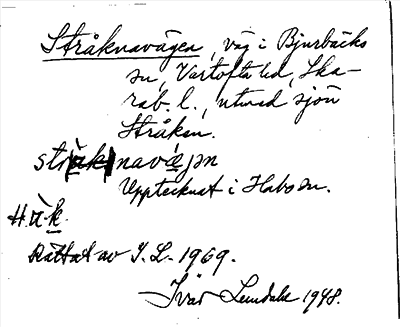 Stråknavägen, väg i Bjurbäcks
sn, Vartofta hd, Ska-
rab. l., utmed sjön
Stråken.
stràknavǽjən
Upptecknat i Habo sn.
H. à k.
Rättat av I. L. 1969.
Ivar Lundahl 1948.